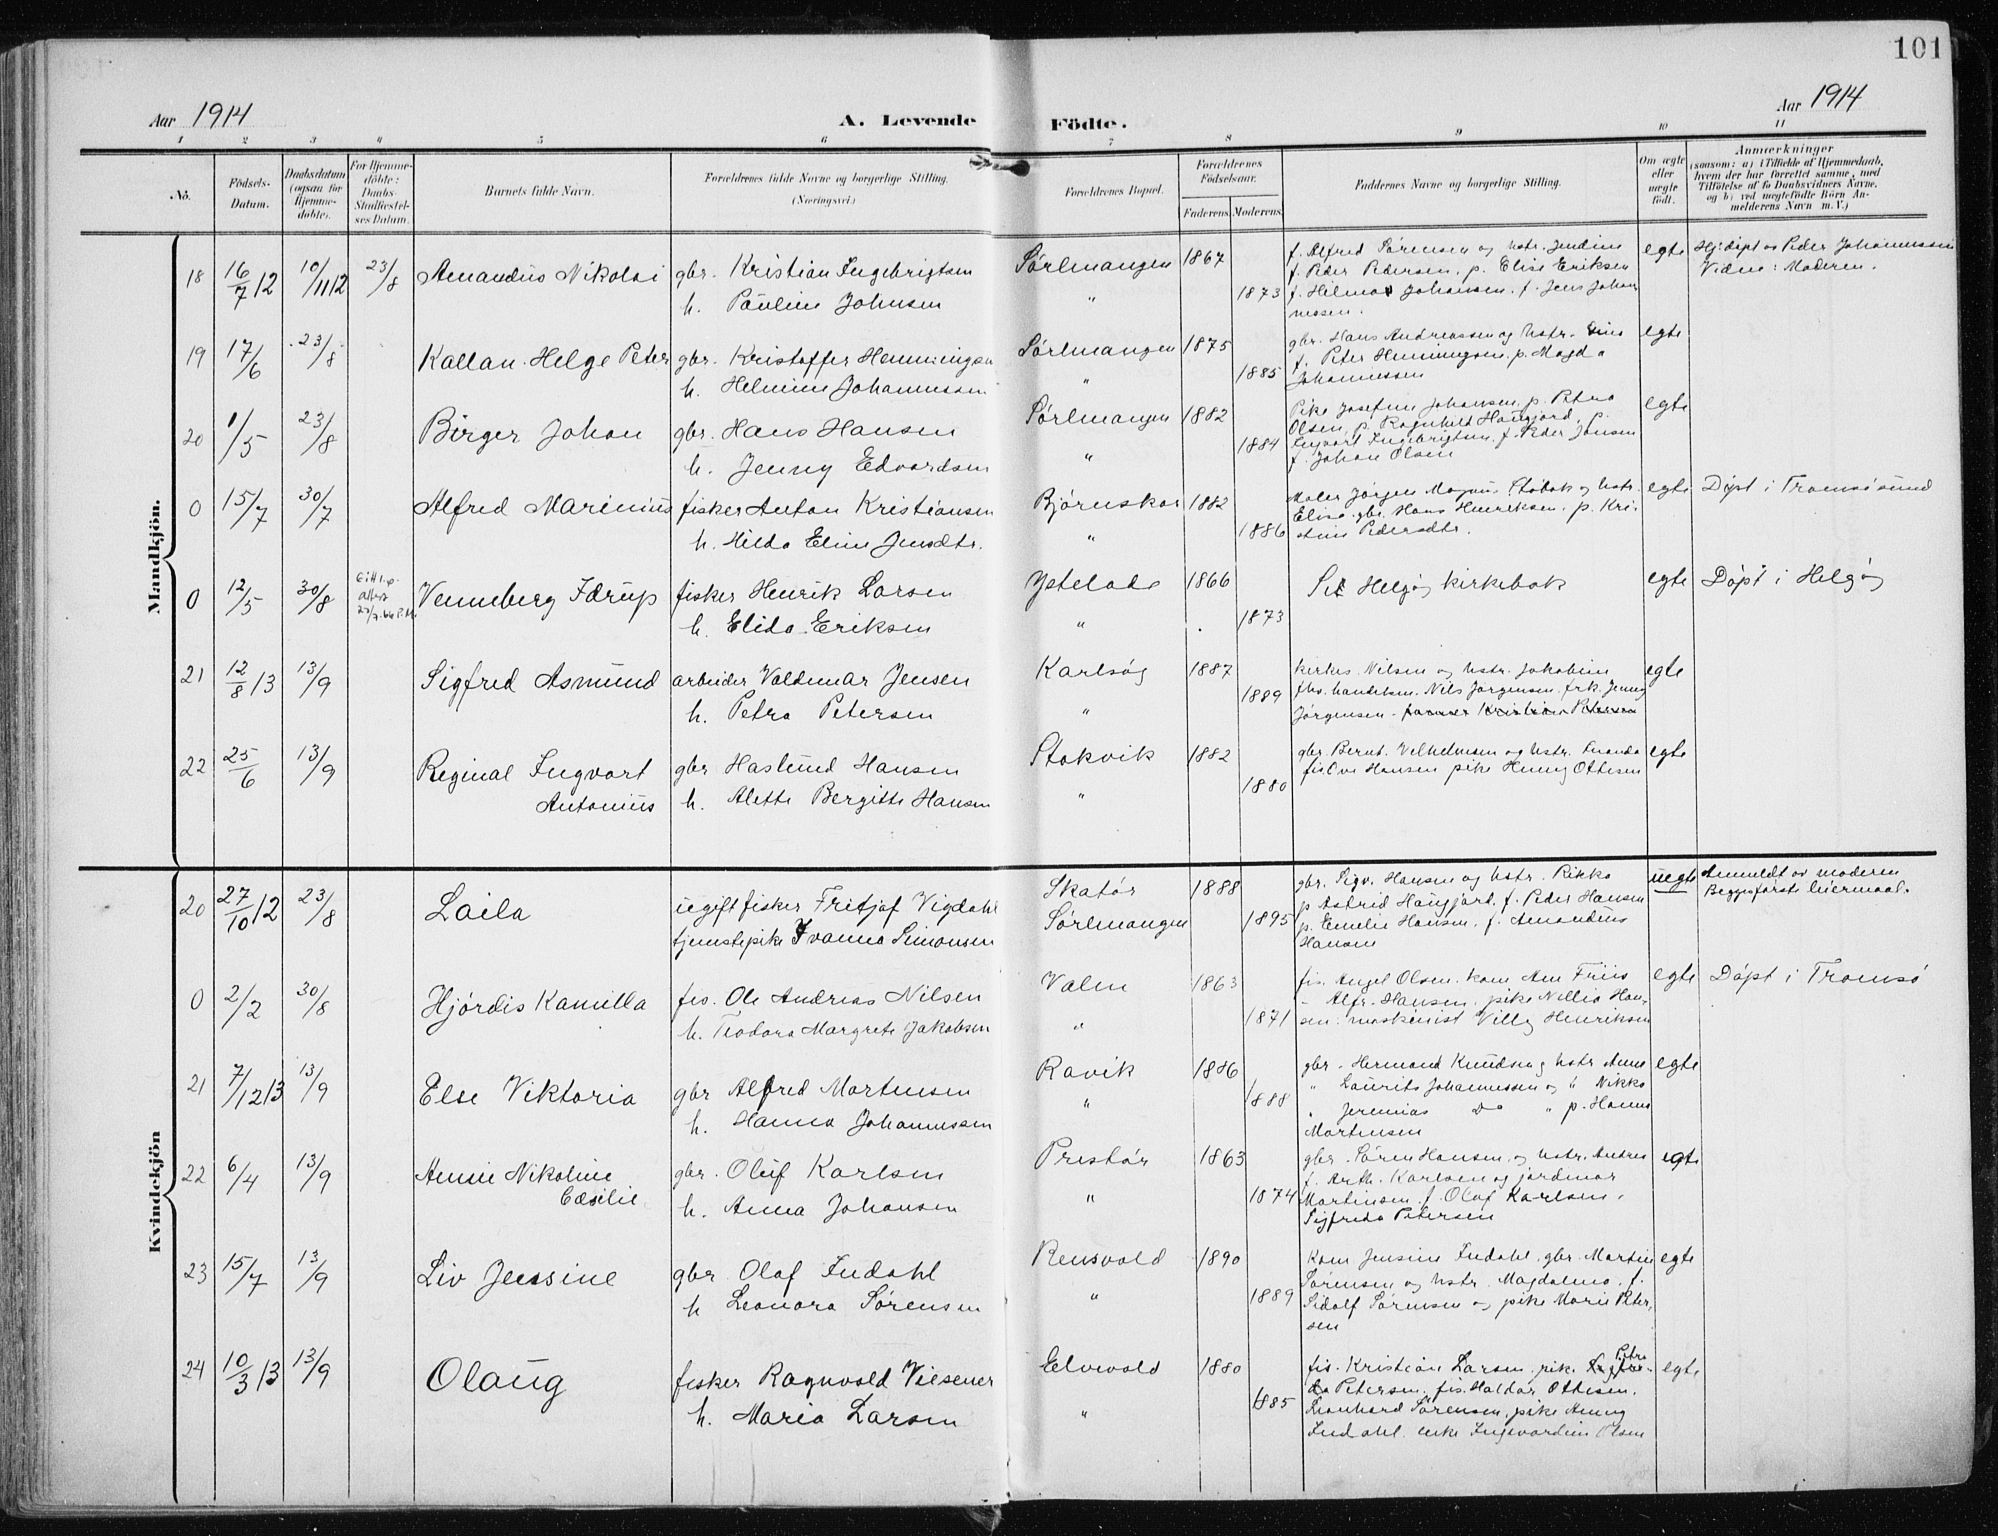 101
Aar 1914
A. Levende Födte.
Aar 1914
1 2 3 4 5 6 7 8 9 10 11
No.
Födsels-Datum.
Daabsdatum (ogsaa for Hjemme-döbte).
For Hjemme-döbte: Daabs Stadfæstel-ses Datum.
Barnets fulde Navn.
Forældrenes fulde Navne og borgerlige Stilling. (Næringsvei.)
Forældrenes Bopæl.
Forældrenes Födselsaar.
Faderens. Moderens.
Faddernes Navne og borgerlige Stilling.
Om ægte eller uægte födt.
Anmærkninger
(saasom: a) i Tilfælde af Hjemmedaab,
hvem der har forrettet samme, med
Tilföielse af to Daabsvidners Navne,
og b) ved uægtefödte Börn An-
melderens Navn m. V.)
Mandkjön.
18 16/7 12 10/11 12 23/8 Amandus Nikolai gbr. Kristian Ingebrigtsen Sørlmangen 1867 f. Alfred Sørensen og hstr. Jendine egte Hj: døpt av Peder Johannessen
f. Peder Pedersen, p. Elise Eriksen Vidne: Moderen.
h. Pauline Johnsen " 1873 f. Hilmar Johansen. f. Jens Johan
nessen.
19 17/6 23/8 Kallan Helge Peter gbr. Kristoffer Henningsen Sørlmangen 1875 gbr. Hans Andreassen og hstr. egte
f. Peter Henningsen. p. Magda
h. Helmine Johannessen " 1885 Johannessen
20 1/5 23/8 Birger Johan gbr. Hans Hansen Sørlmangen 1882 Pike Josefine Johansen, p. Petra egte
Olsen, p. Ragnhild Haugjord, p.
h. Jenny Edvardsen " 1884 Ingvart Ingebrigtsen, f. Peder Jansen
f. Johan Olsen
0 15/7 30/7 Alfred Marinius fisker Anton Kristiansen Bjørnskar 1882 Maler Jørgen Magnus Stabak og hstr. egte Døpt i Tromsøsund
Elisa. gbr. Hans Henriksen. p. Kri-
h. Hilda Eline Jensdtr. " 1886 stine Pedersdtr.
0 12/5 30/8 Venneberg Idrup fisker Henrik Larsen Ystelade 1866 Se Helgøy kirkebok egte Døpt i Helgøy
h. Elida Eriksen " 1873
21 12/8 13 13/9 Sigfred Asmund arbeider Valdemar Jensen Karlsøy 1887 kirkes. Nilsen og hstr. Jakobine egte
fhv. handelsm. Nils Jørgensen. frk. Jenny
h. Petra Petersen " 1889 Jørgensen - Kristian Petersen
22 25/6 13/9 Reginal Ingvart gbr Haslund Hansen Stakvik 1882 gbr. Bernt. Vilhelmsen og hstr. Amanda egte
Antonius h. Alette Bergitte Hansen " 1880 fis Ove Hansen pike Henny Ottesen
Kvindekjön
20 27/10 12 23/8 Laila ugift fisker Fritjof Vigdahl Skatør 1888 gbr. Sigv. Hansen og hstr. Rikka uegte Anmeldt av moderen
p Astrid Haugjort. f. Peder Hansen Begges første leiermaal.
tjenestepike Ivanna Simonsen Sørlmangen 1895 p. Emelie Hansen. f Amandus
Hansen
0 2/2 30/8 Hjørdis Kamilla fis. Ole Andreas Nilsen Valen 1863 fis. Angel Olsen. kone Ane Friis egte Døpt i Tromsø
- Alfr. Hansen. pike Nellie Han-
h. Teodora Margrete Jakobsen " 1871 sen. maskinist Villy Henriksen
21 7/12 13 13/9 Else Viktoria gbr Alfred Martensen Ravik 1886 gbr. Hermand Knudsen og hstr Anne egte
" Laurits Johannessen og " Nikka
h. Hanna Johannessen " 1888 " Jeremias Do " p. Hanna
Martensen
22 6/4 13/9 Annie Nikoline gbr. Oluf Karlsen Prestør 1863 gbr. Søren Hansen. og hstr. Andrea egte
Cæsilie f. Arth. Karlsen og jordmor
h. Anna Johansen " 1874 Martinsen. f. Olaf Karlsen.
Sigfrida Petersen
23 15/7 13/9 Liv Jensine gbr Olaf Indahl Rensvold 1890 Kone Jensine Indahl. gbr. Martin egte
Sørensen og hstr. Magdalena. f.
h Leonora Sørensen " 1889 Sidolf Sørensen og pike Marie Peter-
sen
24 10/3 13 13/9 Olaug fisker Ragnvald Vilsener Elvevold 1880 fis. Kristian Larsen. pike Petra egte
Petersen. fis. Haldor Ottesen.
h. Maria Larsen " 1885 Leonhard Sørensen, pike Henny
Indahl. enke Ingevardine Olsen